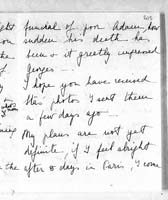 funeral of poor Adam, how
sudden his death he
been & it greatly impressed
Georges —
I hope you have received
the photos I sent them
a few days ago —
My plans are not yet
definite, if I feel alright
the after 8 days in Paris, I come